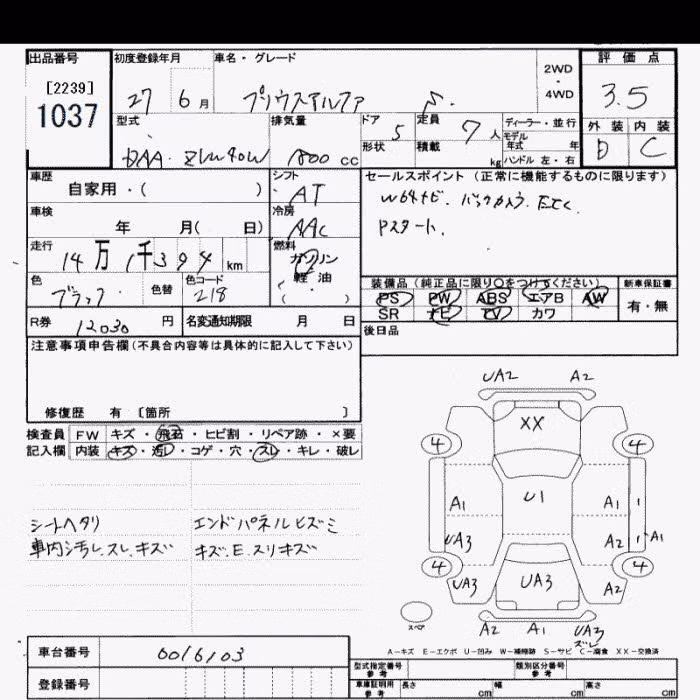 出品番号 初度登録年月 車名・グレード 2WD ・ 4WD 評価点
[2239]
1037
27 6月 プリウスアルファ S. 3.5
型式 排気量 ドア 5 定員 7人 ディーラー・並行 外装 内装
形状 積載 kg モデル年式 年
DAA・ZVW40W 1800cc ハンドル 左・右 D C
車歴 シフト セールスポイント(正常に機能するものに限ります)
自家用・( ) AT
W64ナビ. バックカメラ. ETC.
車検 冷房 Pスタート.
年 月( 日) AAC
走行 14万1千394km 燃料
ガソリン
(軽・油)
色 ブラック 色替 色コード 218
装備品(純正品に限り○をつけてください) 新車保証書
PS PW ABS エアB AW 有・無
SR ナビ TV カワ
R券 12030円 名変通知期限 月 日 後日品
注意事項申告欄(不具合内容等は具体的に記入して下さい)
修復歴 有 〔箇所 〕
検査員 FW キズ・飛石・ヒビ割・リペア跡・×要
記入欄 内装 キズ・汚レ・コゲ・穴・スレ・キレ・破レ
シートヘタリ エンドパネルヒズミ
車内汚レ.スレ.キズ キズ.E.スリキズ
UA2 A2
XX
4 4
A1 U1 A1 1 A1
UA3 A2
4 4
UA3 UA3 A2
スペア A2 A1 UA3
ズレ
A-キズ E-エクボ U-凹み W-補修跡 S-サビ C-腐食 XX-交換済
車台番号 6016103
型式指定番号 参考 類別区分番号 参考
登録番号 車庫証明用 参考 長さ cm 幅 cm 高さ cm